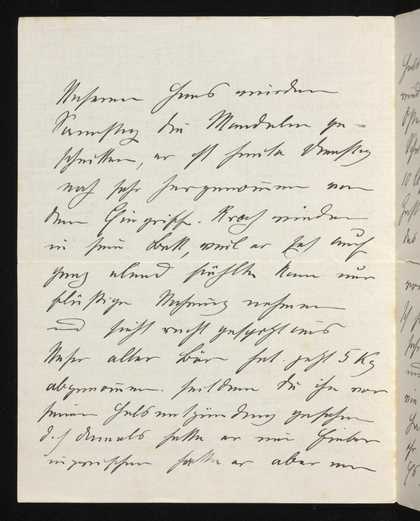 Unserem Hans wurden
Samstag die Mandeln ge-
schnitten, er ist heute Dienstag
noch sehr hergenommen von
dem Eingriff. Kroch wieder
in sein Bett, weil er sich
ganz elend fühlte kann nur
flüssige Nahrung nehmen
und sieht recht aus
Unser alter Bär hat jetzt 5 Kg
abgenommen seitdem du ihn vor
seiner Halsentzündung gesehen
damals hatte er Fieber
inzwischen hatte er aber